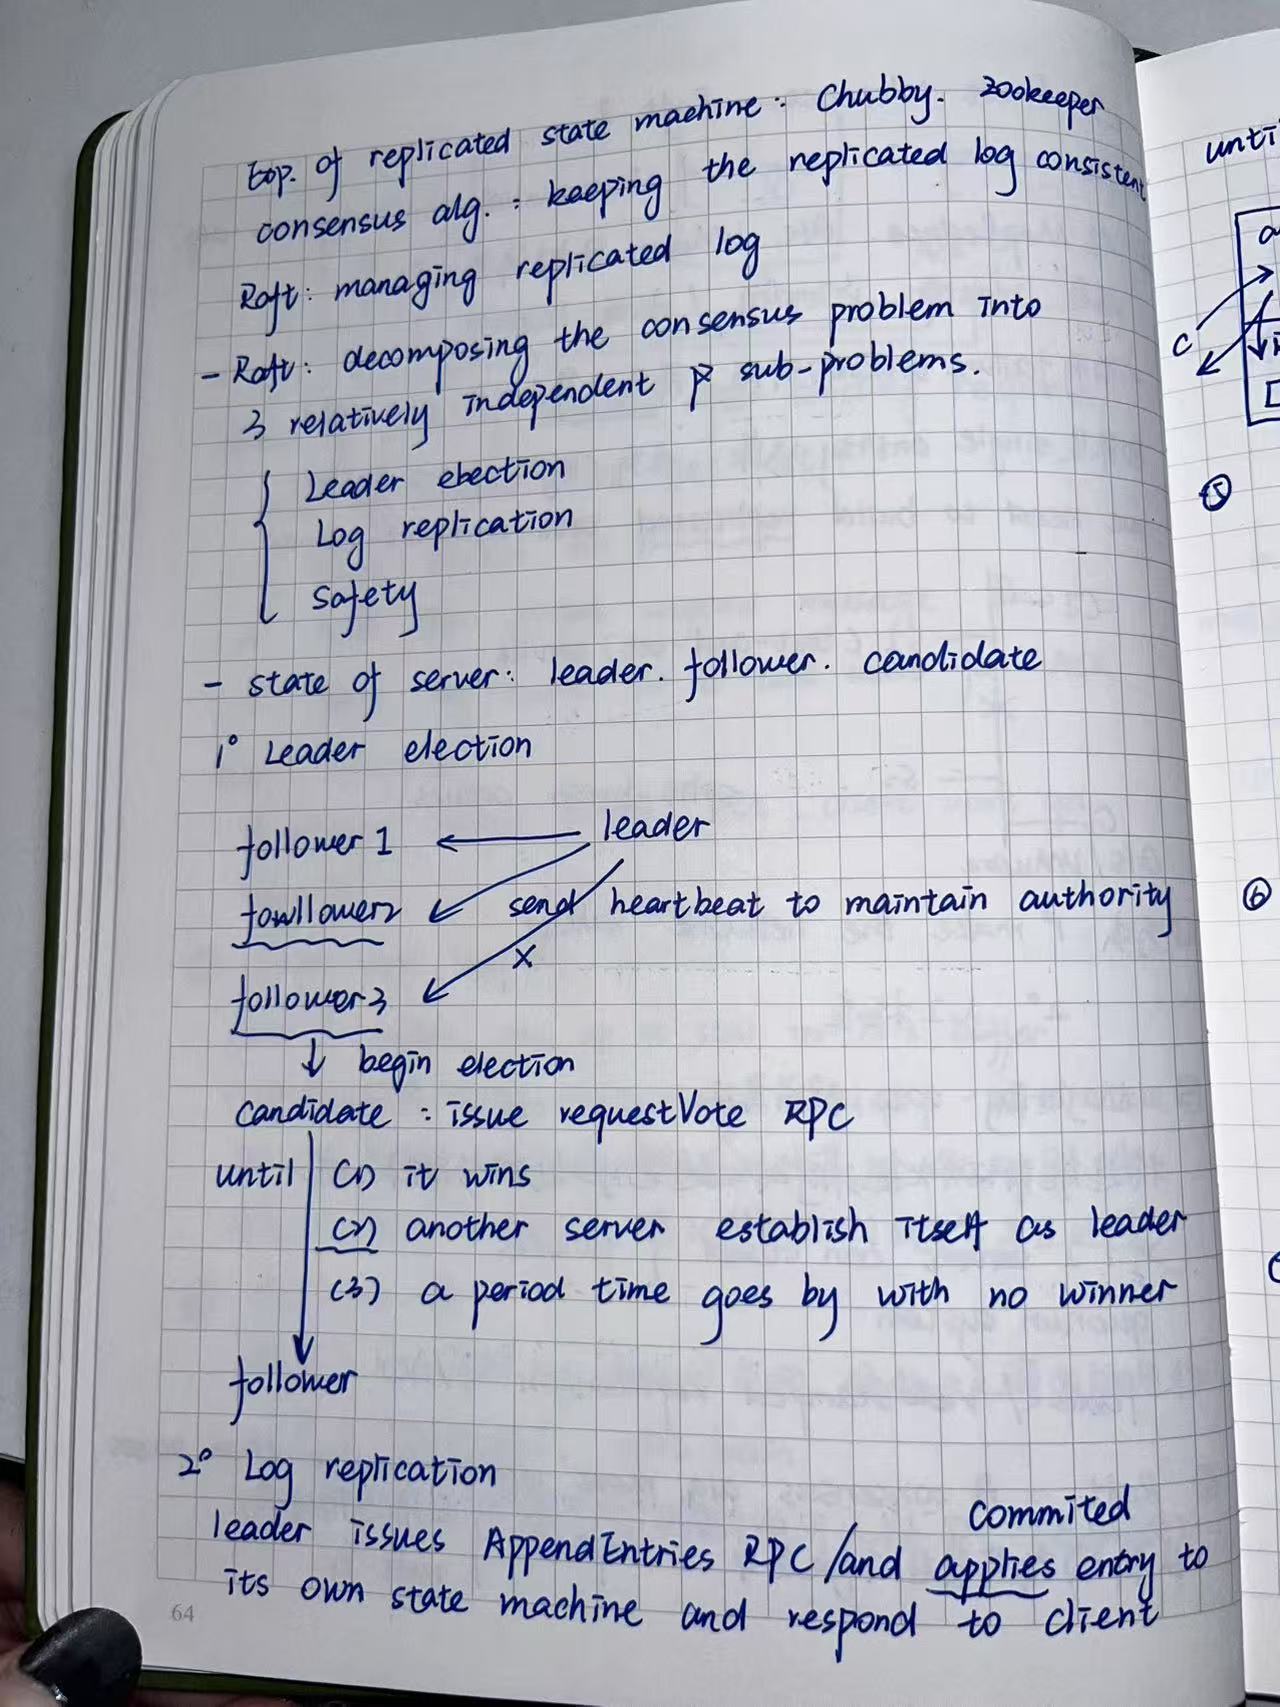 Exp. of replicated state machine : Chubby. Zookeeper
consensus alg. : keeping the replicated log consistent
Raft: managing replicated log
- Raft: decomposing the consensus problem into
3 relatively independent sub-problems.
Leader election
Log replication
Safety
- state of server: leader. follower. candidate
1° Leader election
follower 1 leader
fowllower2 send heartbeat to maintain authority
x
follower3
begin election
candidate : issue requestVote RPC
until (1) it wins
(2) another server establish itself as leader
(3) a period time goes by with no winner
follower
2° Log replication
commited
leader issues AppendEntries RPC /and applies entry to
its own state machine and respond to client
64
until
C
⑤
⑥